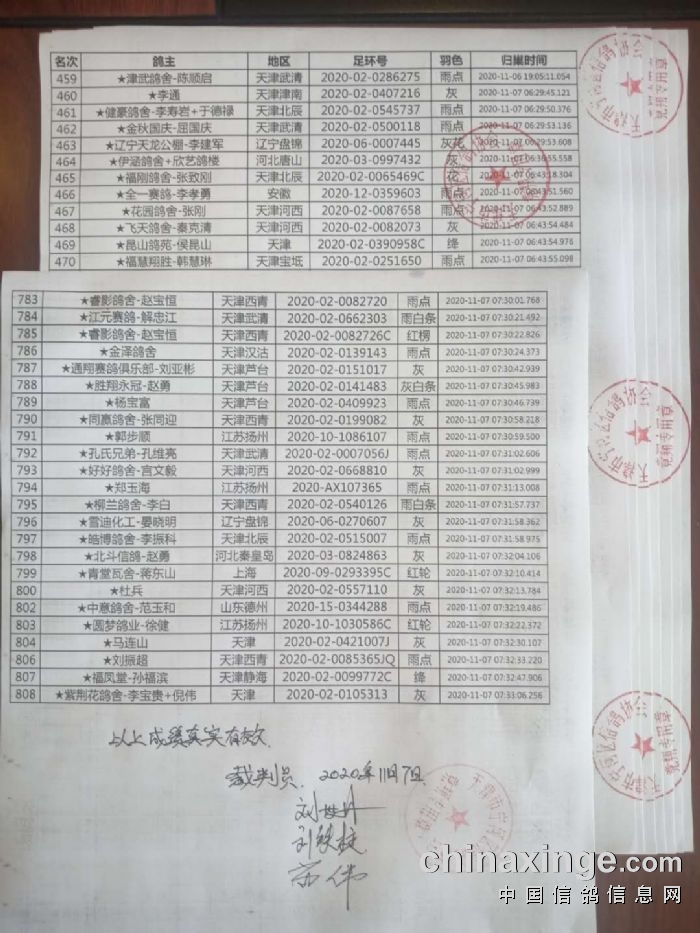 名次 鸽主 地区 足环号 羽色 归巢时间
459 ★津武鸽舍-陈顺启 天津武清 2020-02-0286275 雨点 2020-11-06 19:05:11.054
460 ★李通 天津津南 2020-02-0407216 灰 2020-11-07 06:29:45.121
461 ★健豪鸽舍-李寿岩+于德禄 天津北辰 2020-02-0545737 雨点 2020-11-07 06:29:50.376
462 ★金秋国庆-屈国庆 天津武清 2020-02-0500118 雨点 2020-11-07 06:29:53.136
463 ★辽宁天龙公棚-李建军 辽宁盘锦 2020-06-0007445 灰花 2020-11-07 06:29:53.608
464 ★伊涵鸽舍+欣艺鸽楼 河北唐山 2020-03-0997432 灰 2020-11-07 06:36:55.558
465 ★福刚鸽舍-张致刚 天津北辰 2020-02-0065469C 花 2020-11-07 06:43:18.304
466 ★全一赛鸽-李孝勇 安徽 2020-12-0359603 雨点 2020-11-07 06:43:51.560
467 ★花园鸽舍-张刚 天津河西 2020-02-0087658 雨点 2020-11-07 06:43:52.889
468 ★飞天鸽舍-秦克清 天津河西 2020-02-0082073 灰 2020-11-07 06:43:54.484
469 ★昆山鸽苑-侯昆山 天津 2020-02-0390958C 绛 2020-11-07 06:43:54.976
470 ★福慧翔胜-韩慧琳 天津宝坻 2020-02-0251650 雨点 2020-11-07 06:43:55.098
783 ★睿影鸽舍-赵宝恒 天津西青 2020-02-0082720 雨点 2020-11-07 07:30:01.768
784 ★江元赛鸽-解忠江 天津武清 2020-02-0662303 雨白条 2020-11-07 07:30:21.492
785 ★睿影鸽舍-赵宝恒 天津西青 2020-02-0082726C 红楞 2020-11-07 07:30:22.826
786 ★金泽鸽舍 天津汉沽 2020-02-0139143 雨点 2020-11-07 07:30:24.373
787 ★通翔赛鸽俱乐部-刘亚彬 天津芦台 2020-02-0151017 灰 2020-11-07 07:30:42.939
788 ★胜翔永冠-赵勇 天津芦台 2020-02-0141483 灰白条 2020-11-07 07:30:45.983
789 ★杨宝富 天津芦台 2020-02-0409923 雨点 2020-11-07 07:30:46.739
790 ★同赢鸽舍-张同迎 天津西青 2020-02-0199082 灰 2020-11-07 07:30:58.218
791 ★郭步顺 江苏扬州 2020-10-1086107 雨点 2020-11-07 07:30:59.500
792 ★孔氏兄弟-孔维亮 天津武清 2020-02-0007056J 雨点 2020-11-07 07:31:02.606
793 ★好好鸽舍-宫文毅 天津河西 2020-02-0668810 灰 2020-11-07 07:31:02.999
794 ★郑玉海 江苏扬州 2020-AX107365 雨点 2020-11-07 07:31:13.008
795 ★柳兰鸽舍-李白 天津西青 2020-02-0540126 雨白条 2020-11-07 07:31:57.737
796 ★雪迪化工-晏晓明 辽宁盘锦 2020-06-0270607 灰 2020-11-07 07:31:58.362
797 ★皓博鸽舍-李振科 天津北辰 2020-02-0515007 雨点 2020-11-07 07:31:58.975
798 ★北斗信鸽-赵勇 河北秦皇岛 2020-03-0824863 灰 2020-11-07 07:32:04.106
799 ★青堂瓦舍-蒋东山 上海 2020-09-0293395C 红轮 2020-11-07 07:32:10.414
800 ★杜兵 天津河西 2020-02-0557110 灰 2020-11-07 07:32:13.784
802 ★中意鸽舍-范玉和 山东德州 2020-15-0344288 雨点 2020-11-07 07:32:19.486
803 ★圆梦鸽业-徐健 江苏扬州 2020-10-1030586C 红轮 2020-11-07 07:32:22.372
804 ★马连山 天津 2020-02-0421007J 灰 2020-11-07 07:32:30.107
806 ★刘振超 天津西青 2020-02-0085365JQ 雨点 2020-11-07 07:32:33.220
807 ★福凤堂-孙福滨 天津静海 2020-02-0099772C 绛 2020-11-07 07:32:47.906
808 ★紫荆花鸽舍-李宝贵+倪伟 天津 2020-02-0105313 灰 2020-11-07 07:33:06.256
以上成绩真实有效
裁判员 2020年11月7日
刘铁柱
chinaxinge.com
中国信鸽信息网